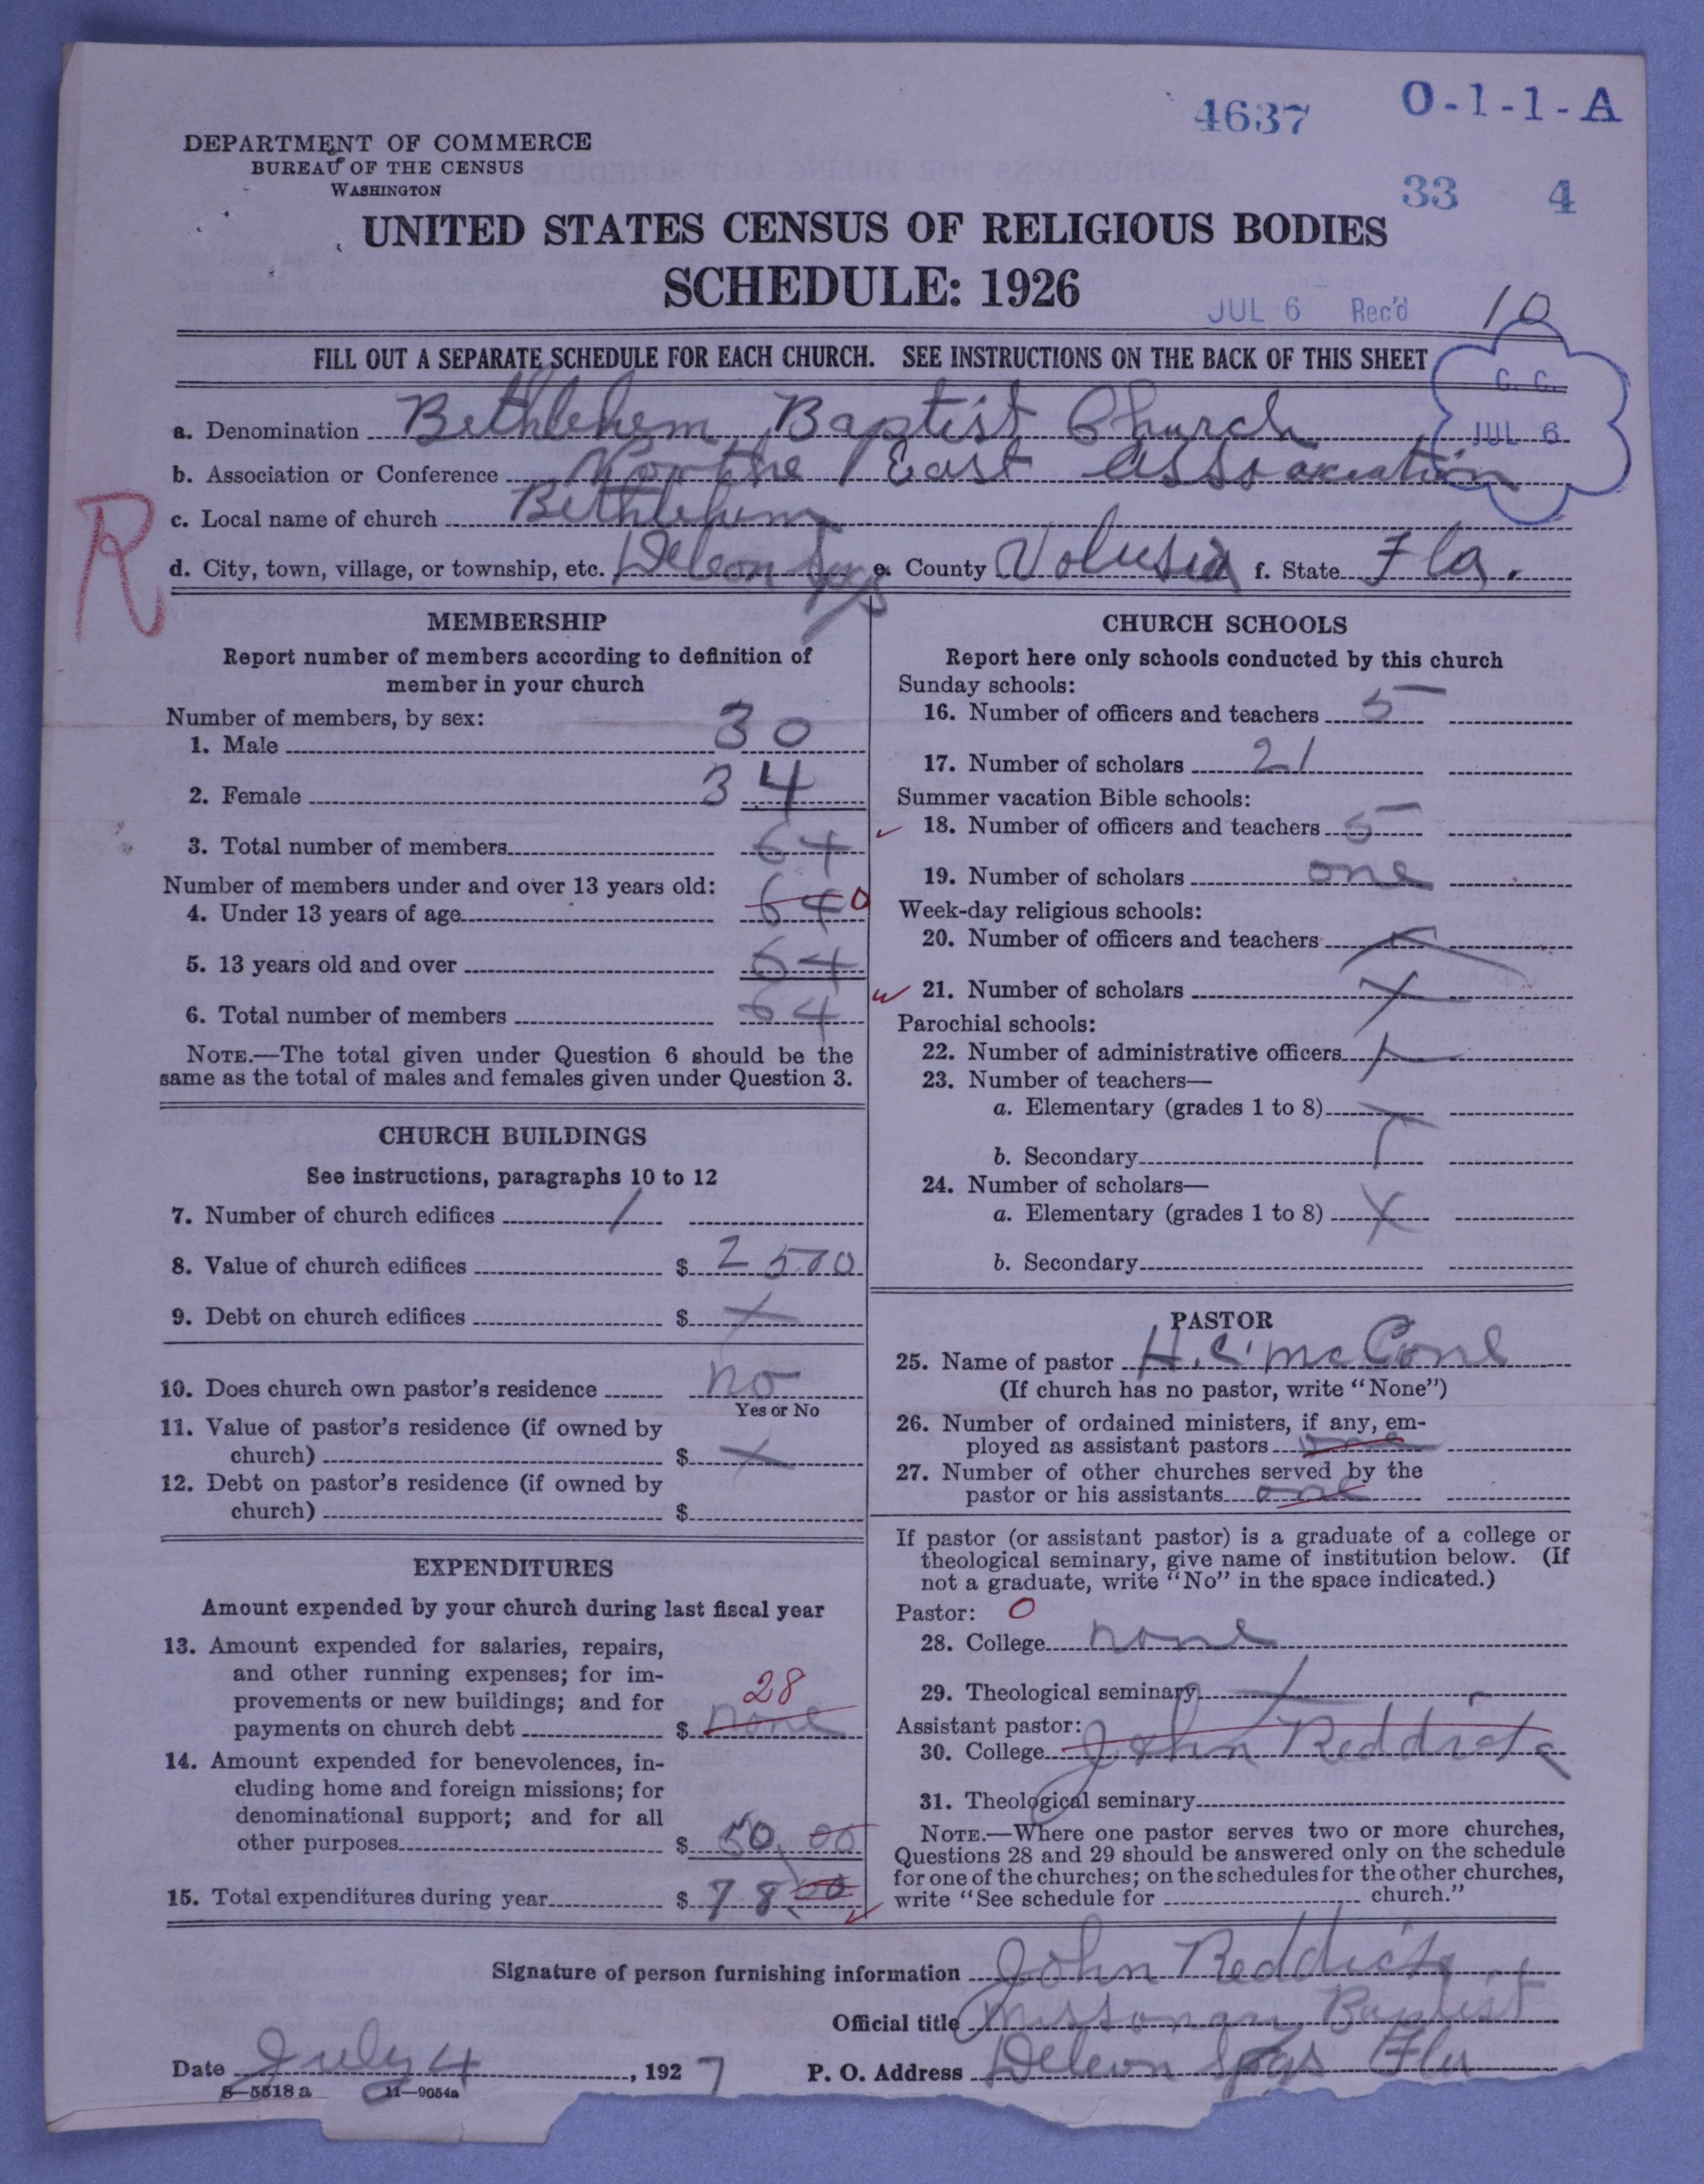 4637 O-1-1-A
DEPARTMENT OF COMMERCE
BUREAU OF THE CENSUS
WASHINGTON
33 4
UNITED STATES CENSUS OF RELIGIOUS BODIES
SCHEDULE: 1926
JUL 6 Rec'd 10
FILL OUT A SEPARATE SCHEDULE FOR EACH CHURCH. SEE INSTRUCTIONS ON THE BACK OF THIS SHEET
C. C.
JUL 6
a. Denomination Bethlehem Baptist Church
b. Association or Conference Northe East Association
R
c. Local name of church Bethlehem
d. City, town, village, or township, etc. Deleon Spgs e. County Volusia f. State Fla.
MEMBERSHIP
Report number of members according to definition of
member in your church
Number of members, by sex:
1. Male 30
2. Female 34
3. Total number of members 64
Number of members under and over 13 years old:
4. Under 13 years of age 64 0
5. 13 years old and over 64
6. Total number of members 64
NOTE.—The total given under Question 6 should be the
same as the total of males and females given under Question 3.
CHURCH BUILDINGS
See instructions, paragraphs 10 to 12
7. Number of church edifices 1
8. Value of church edifices $ 2500
9. Debt on church edifices $ X
10. Does church own pastor's residence no
Yes or No
11. Value of pastor's residence (if owned by
church) $ X
12. Debt on pastor's residence (if owned by
church) $
EXPENDITURES
Amount expended by your church during last fiscal year
13. Amount expended for salaries, repairs,
and other running expenses; for im-
provements or new buildings; and for 28
payments on church debt $ none
14. Amount expended for benevolences, in-
cluding home and foreign missions; for
denominational support; and for all
other purposes $ 50.00
15. Total expenditures during year $ 78 00
CHURCH SCHOOLS
Report here only schools conducted by this church
Sunday schools:
16. Number of officers and teachers 5
17. Number of scholars 21
Summer vacation Bible schools:
18. Number of officers and teachers 5
19. Number of scholars one
Week-day religious schools:
20. Number of officers and teachers X
21. Number of scholars X
Parochial schools:
22. Number of administrative officers X
23. Number of teachers—
a. Elementary (grades 1 to 8) X
b. Secondary
24. Number of scholars—
a. Elementary (grades 1 to 8) X
b. Secondary
PASTOR
25. Name of pastor H.C. McCone
(If church has no pastor, write "None")
26. Number of ordained ministers, if any, em-
ployed as assistant pastors one
27. Number of other churches served by the
pastor or his assistants one
If pastor (or assistant pastor) is a graduate of a college or
theological seminary, give name of institution below. (If
not a graduate, write "No" in the space indicated.)
Pastor: 0
28. College none
29. Theological seminary X
Assistant pastor:
30. College John Reddicks
31. Theological seminary
NOTE.—Where one pastor serves two or more churches,
Questions 28 and 29 should be answered only on the schedule
for one of the churches; on the schedules for the other churches,
write "See schedule for church."
Signature of person furnishing information John Reddicks
Official title Missonary Baptist
Date July 4, 1927 P. O. Address Deleon Spgs Fla
8-5518a 11-9054a